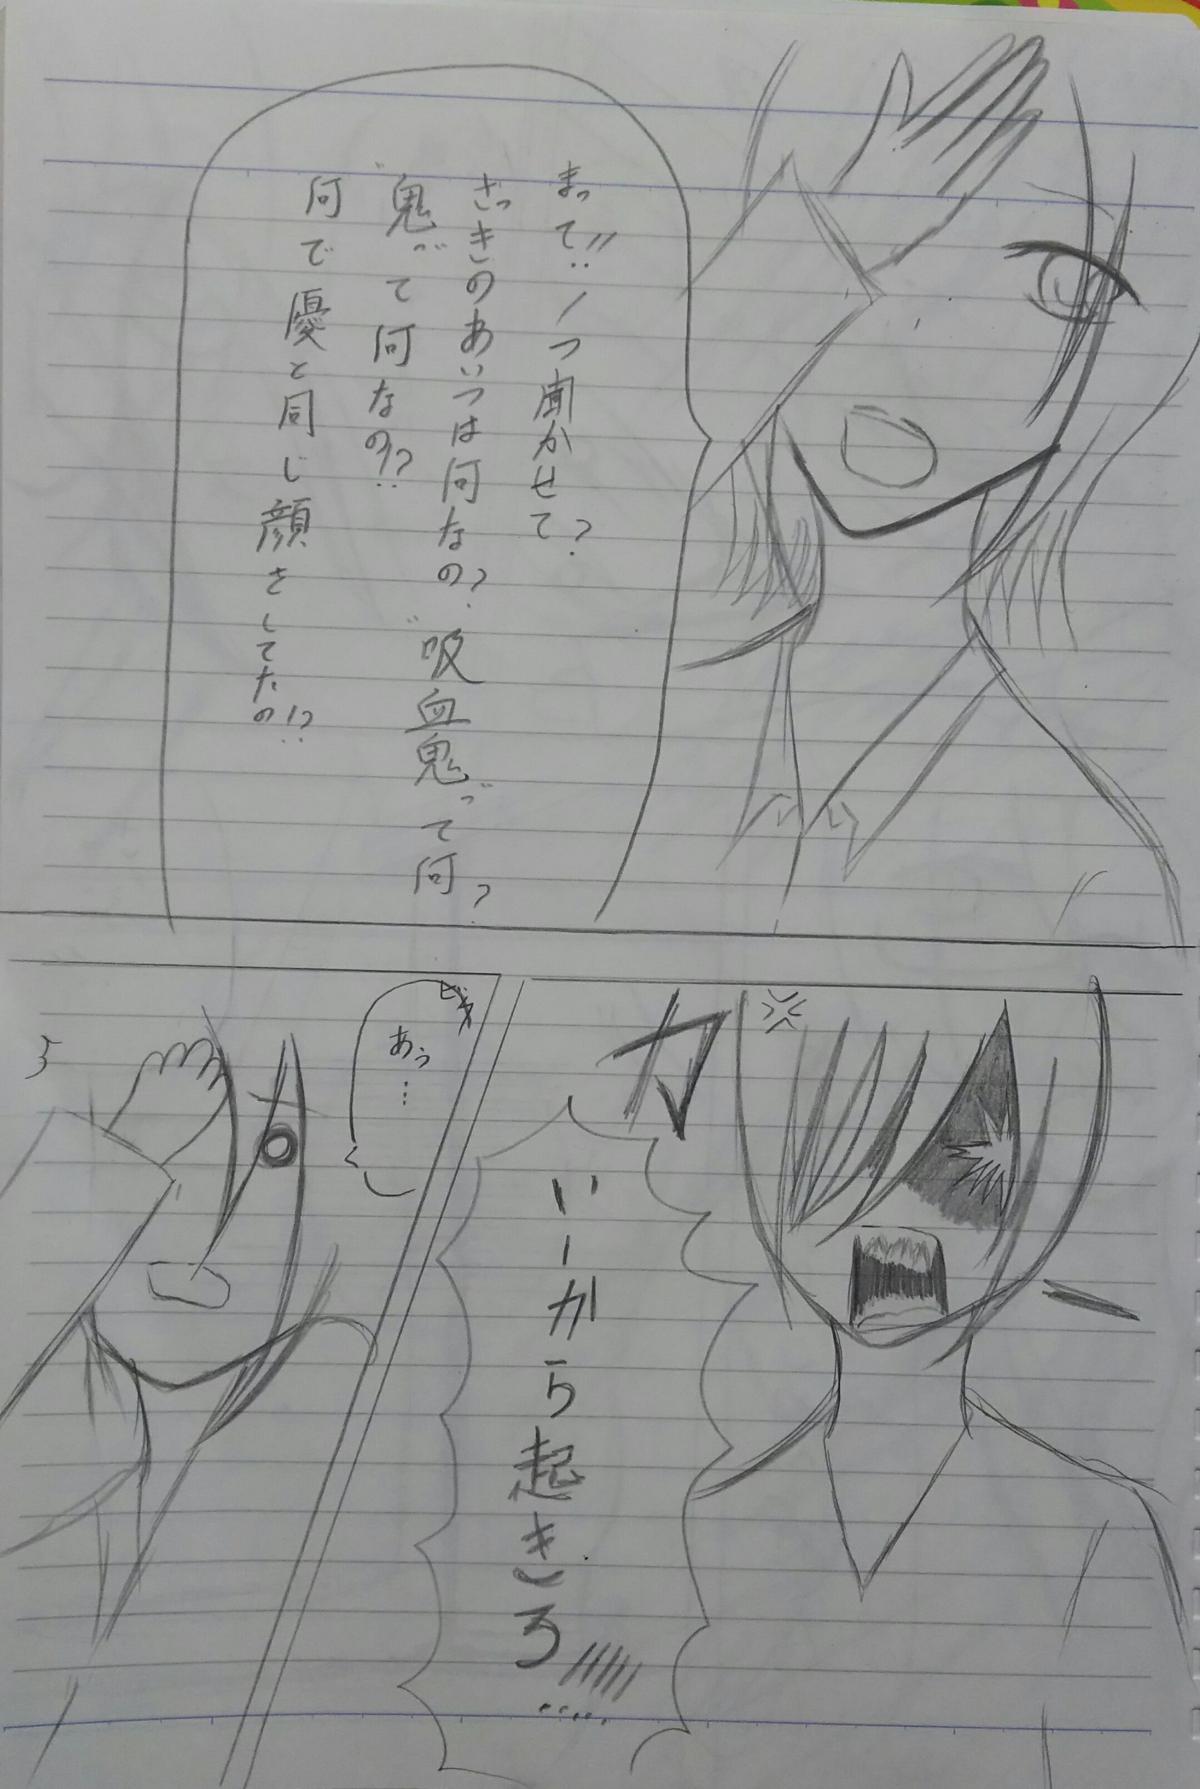 まって!! 1つ聞かせて?
さっきのあいつは何なの? "吸血鬼"って何?
"鬼"って何なの!?
何で優と同じ顔をしてたの!?
カッ
いーから起きろ!!!!!
あぅ…
ビクッ